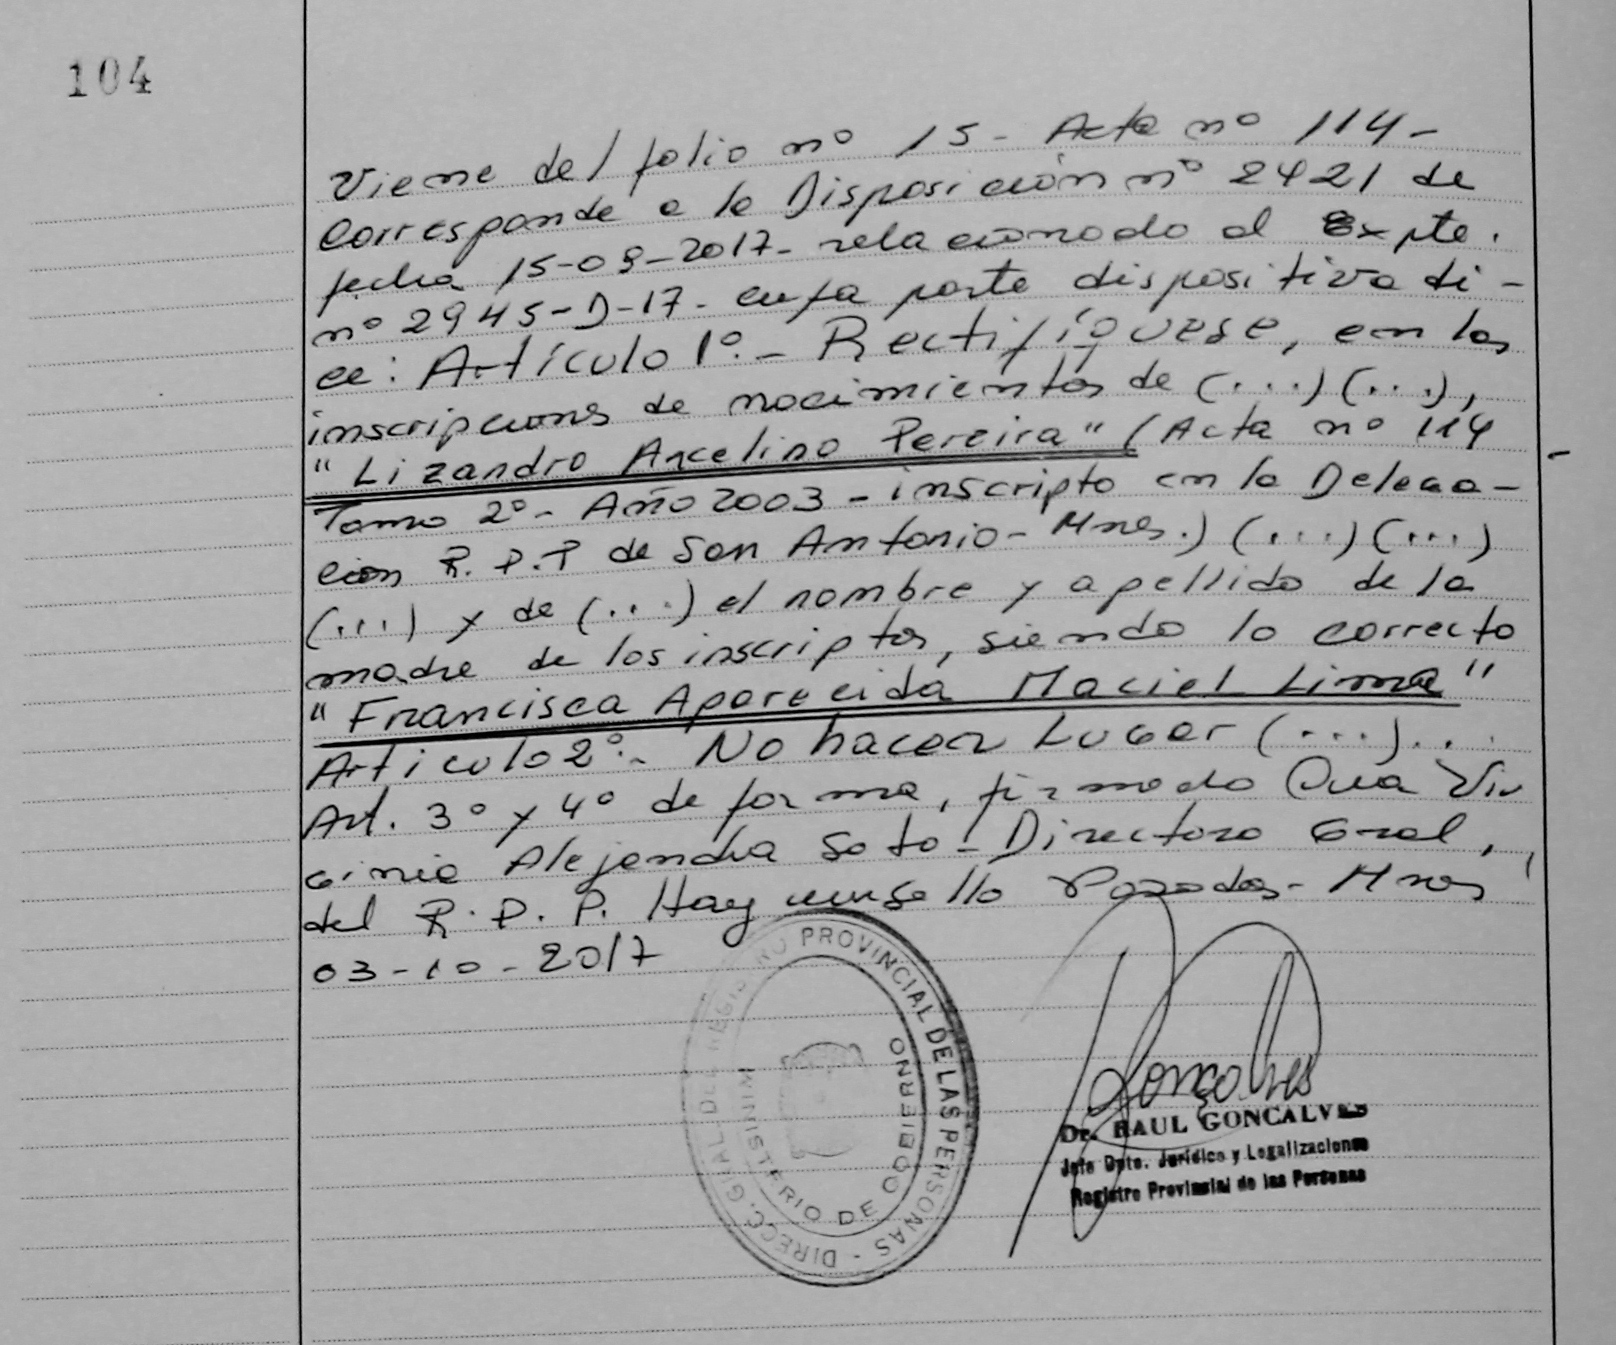 104
Viene del folio nº 15 - Acta nº 114 -
Corresponde a la Disposición nº 2421 de
fecha 15-09-2017- relacionado al Expte.
nº 2945-D-17- cuya parte dispositiva di-
ce: Artículo 1º.- Rectifíquese, en las
inscripciones de nacimientos de (...) (...),
"Lizandro Arcelino Pereira" (Acta nº 114 -
Tomo 2º- Año 2003 - inscripto en la Delega-
cion R.P.P de San Antonio- Mnes.) (...) (...)
(...) y de (...) el nombre y apellido de la
madre de los inscriptos, siendo lo correcto
"Francisca Aparecida Maciel Lima"
Articulo 2º.- No hacer Lugar (...)...
Art. 3º y 4º de forma, firmado Dra Vir
ginia Alejandra Soto - Directora Gral,
del R.P.P. Hay un sello Posadas- Mnes,
03-10-2017
DIRECC. GRAL. DEL REGISTRO PROVINCIAL DE LAS PERSONAS -
MINISTERIO DE GOBIERNO
Gonçalves
Dr. RAUL GONCALVES
Jefe Dpto. Jurídico y Legalizaciones
Registro Provincial de las Personas